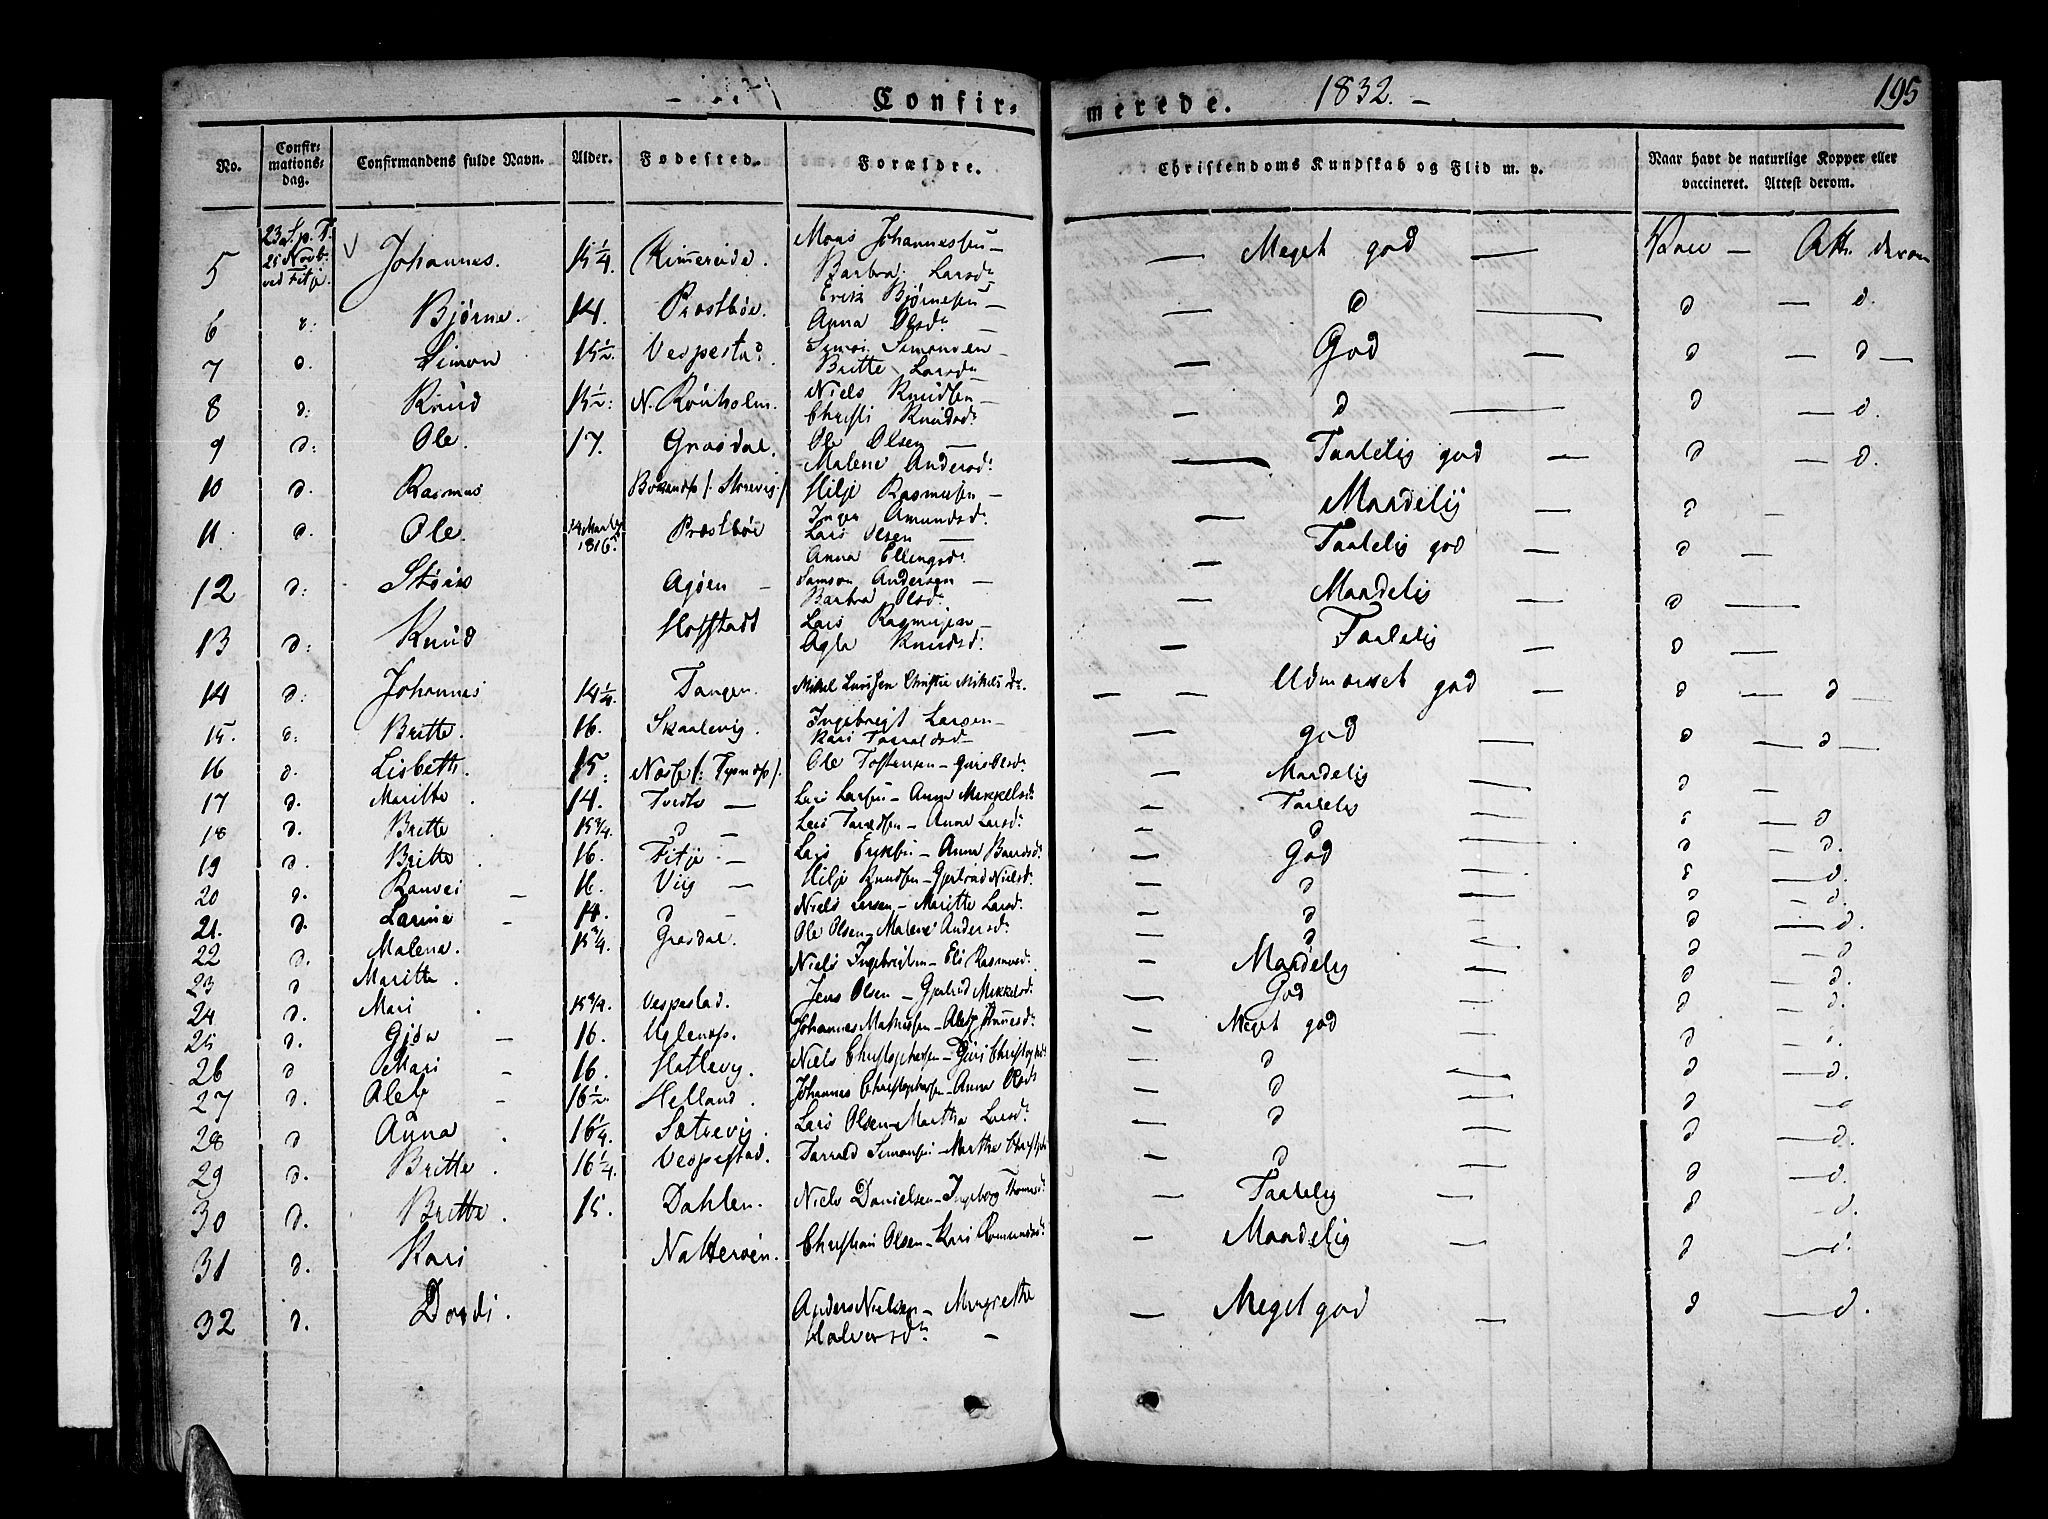 Confir=
merede. 1832. 195
No. Confir-mations-dag. Confirmandens fulde Navn. Alder. Fødested. Forældre. Christendoms Kundskab og Flid m. v. Naar havt de naturlige Kopper eller vaccineret. Attest derom.
5 23 S. p. T. 25 Novb. ved Fitje. Johannes. 15 1/4 Kimereide. Mons Johannessen – Barbra Larsd. Meget god Att. derom
6 d: Bjørne. 14. Præstbøe. Erik Bjørnesen – Anna Olsd. d d d.
7 d. Simon 15 1/2 Vespestad Simon Simonsen – Britte Larsd. God d d
8 d: Knud 15 1/2: N. Rønholm. Niels Knudsen – Christi Knudsd. d d d.
9 d: Ole. 17. Grasdal. Ole Olsen – Malene Andersd: Taalelig god d d.
10 d. Rasmus Hilje Rasmusen – Amundsd. Maadelig d
11. d. Ole. 1816. Præstbøe Lars Olsen – Anna Ellingsd. Taalelig god d
12 d: Agøen Samson Andersen – Barbra Olsd. Maadelig d
13 d: Knud Hofstadt Lars Rasmusen – Knudsd: Taalelig d
14 d: Johannes 14 1/4. Tangen. Mikel Larssen Christie Mikelsd. Udmærket god d d
15. d: Britte. 16. Skaalevig. Ingebrigt Larsen – Kari Taraldsd god d d
16 d. Lisbeth. 15. Ole Tostensen – Maadelig d
17 d. Maritte. 14. Lars Larsen – Anna Mikkelsd: Taalelig d d
18 d. Britte. 15 3/4. d Lars – Anne Larsd. d d d.
19 d. Britte. 16. Fitje. Lars Eriksen – Anna Baardsd: God d d.
20 d. Ranvei 16. Viig Hilje Knudsen – Gjertrud Nielsd: d d d.
21. d. Larine 14. d Niels Larsen – Maritte Larsd: d d d.
22 d. Malena. 15 3/4. Grasdal. Ole Olsen – Malene Andersd: d d d
23 d Maritte. Niels Ingebrigtsen – Eli Rasmusd: Maadelig d d.
24 d. Mari 15 3/4. Vespestad. Jens Olsen – Gjertrud Mikkelsd: God d d.
25 d. Gjøa 16. Johannes – Meget god d
26 d Mari 16. Hatlevig. Niels Christophersen – d d d.
27 d. 16 1/2. Helland. Johannes Christophersen – Anna Olsd: d d
28 d Anna. 16 1/4. Sætrevig. Lars Olsen – Martha Larsd: d d d.
29 d. Britte. 16 1/4. Vespestad. Tarrald Simonsen – Martha d d d.
30 d. Britte. 15. Dahlen. Niels Danielsen – Ingeborg Thomasd: Taalelig d d.
31 d. Kari Nattersøen. Christian Olsen – Kari Maadelig d d.
32 d. Dordi. Anders Nielsen – Margrethe Halversd: Meget god d d.